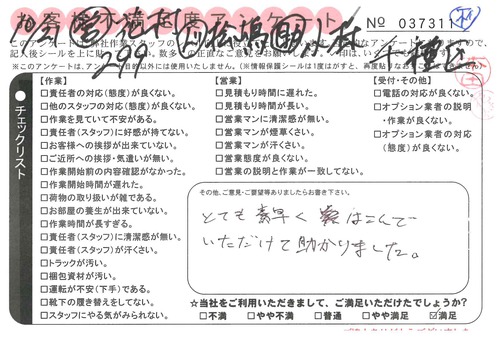 お客様不満足度アンケート
No 037311
【作業】
□責任者の対応(態度)が良くない。
□他のスタッフの対応(態度)が良くない。
□作業を見ていて不安がある。
□責任者(スタッフ)に好感が持てない。
□お客様への挨拶が出来ていない。
□ご近所への挨拶・気遣いが無い。
□作業開始前の内容確認がなかった。
□作業開始時間が遅れた。
□荷物の取り扱いが雑である。
□お部屋の養生が出来ていない。
□作業時間が長すぎる。
□責任者(スタッフ)に清潔感が無い。
□責任者(スタッフ)が汗くさい。
□トラックが汚い。
□梱包資材が汚い。
□運転が不安(下手)である。
□靴下の履き替えをしてない。
□スタッフにやる気がみられない。
【営業】
□見積もり時間に遅れた。
□見積もり時間が長い。
□営業マンに清潔感が無い。
□営業マンが煙草くさい。
□営業マンが汗くさい。
□営業態度が良くない。
□営業の説明と作業が一致してない。
【受付・その他】
□電話の対応が良くない。
□オプション業者の説明
・作業が良くない。
□オプション業者の対応
(態度)が良くない。
チェックリスト
その他、ご意見・ご要望等ありましたらお書き下さい。
とても素早く はこんで
いただけて助かりました。
☆当社をご利用いただきまして、ご満足いただけたでしょうか?
□不満 □やや不満 □普通 □やや満足 ☑満足